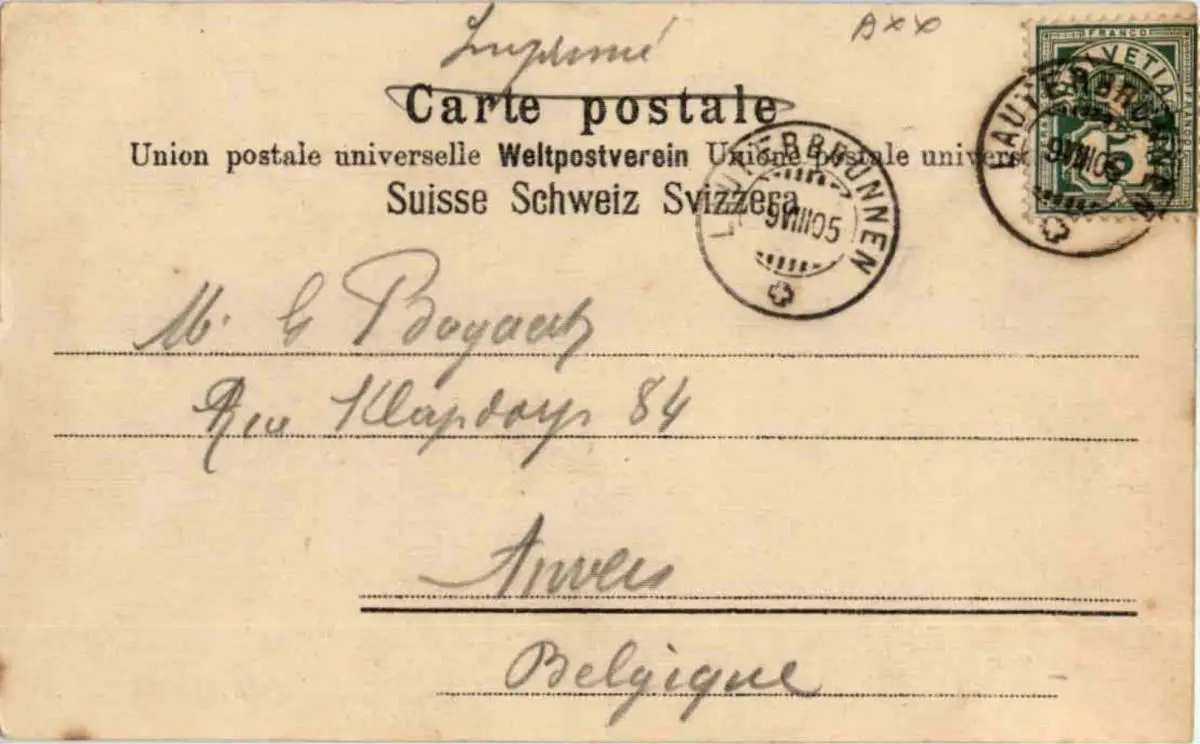 Imprimé
AXX
Carte postale
Union postale universelle Weltpostverein Unione postale univers
Suisse Schweiz Svizzera
FRANCO
HELVETIA
5
LAUTERBRUNNEN
9VIII05
LAUTERBRUNNEN
9VIII05
M. G Bogaerts
Rue Klapdorp 84
Anvers
Belgique